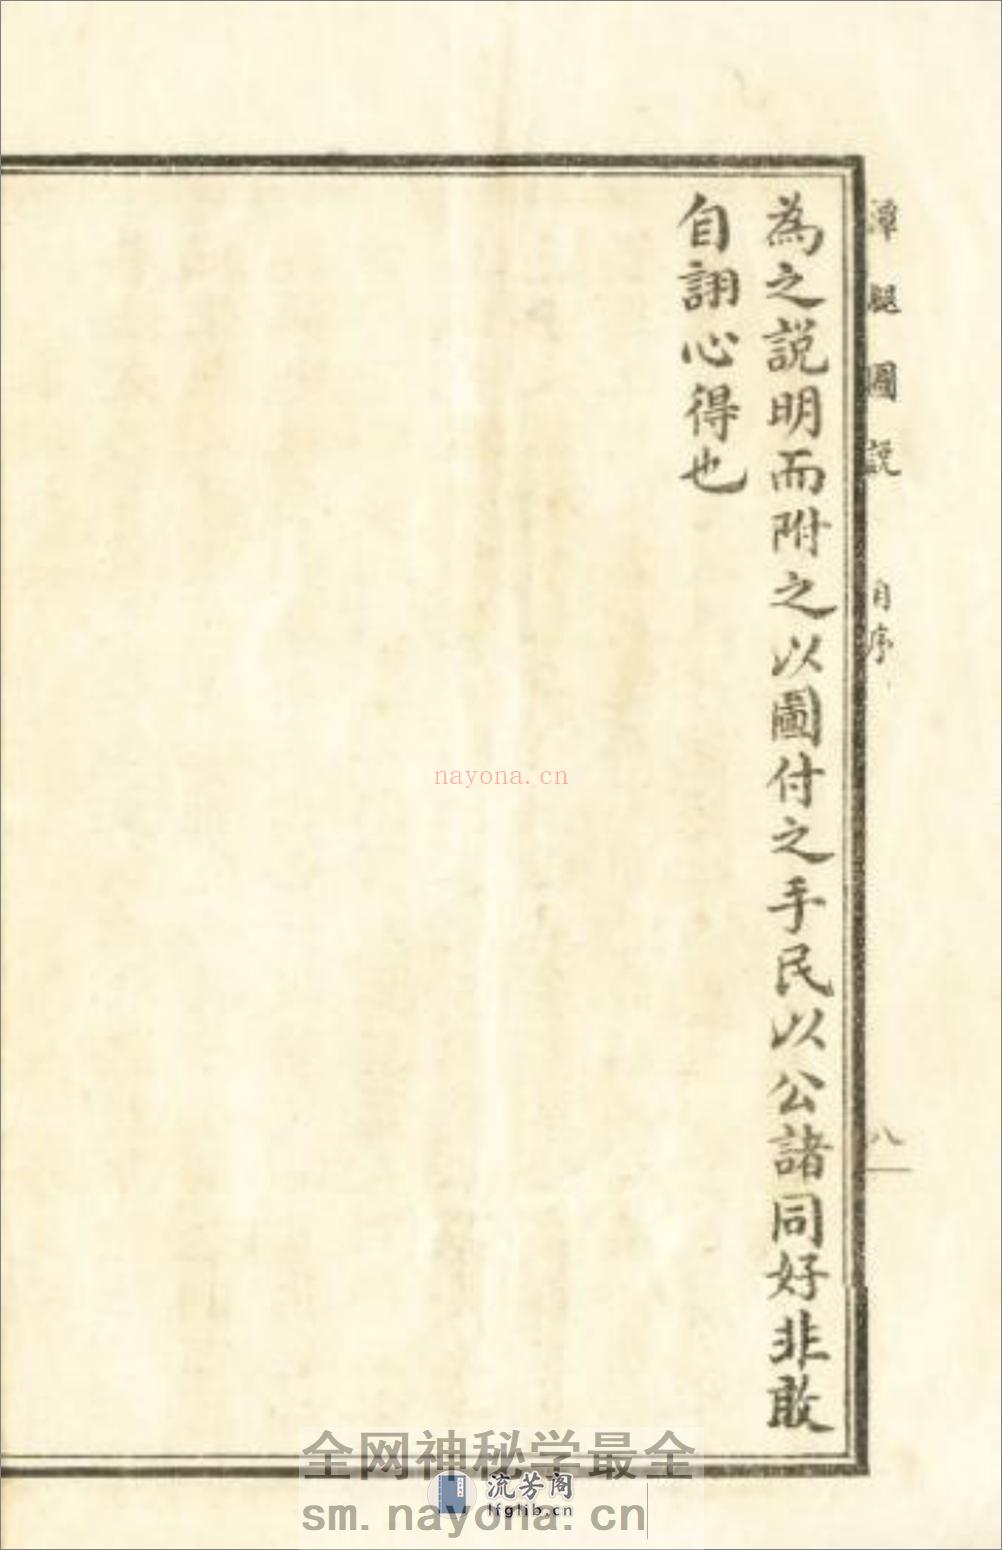 潭腿圖説 自序 八
為之説明而附之以圖付之手民以公諸同好非敢
自詡心得也
nayona.cn
全网神秘学最全
流芳阁
lfglib.cn
sm.nayona.cn